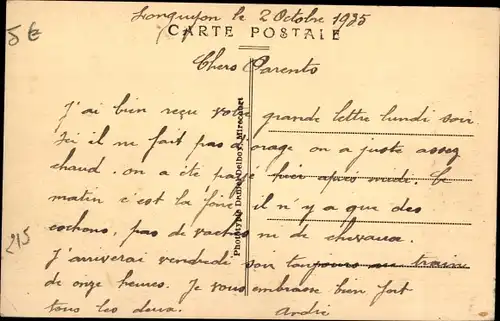 5 €
Longuyon le 2 Octobre 1935
CARTE POSTALE
Chers Parents
J'ai bien reçu votre grande lettre lundi soir.
Ici il ne fait pas d'orage on a juste assez
chaud. on a été payé hier après midi. Ce
matin c'est la foire il n'y a que des
cochons, pas de vaches ni de chevaux.
J'arriverai vendredi soir toujours au train
de onze heures. Je vous embrasse bien fort
tous les deux. André
Phototypie Daniel Delboy, Mirecourt
215